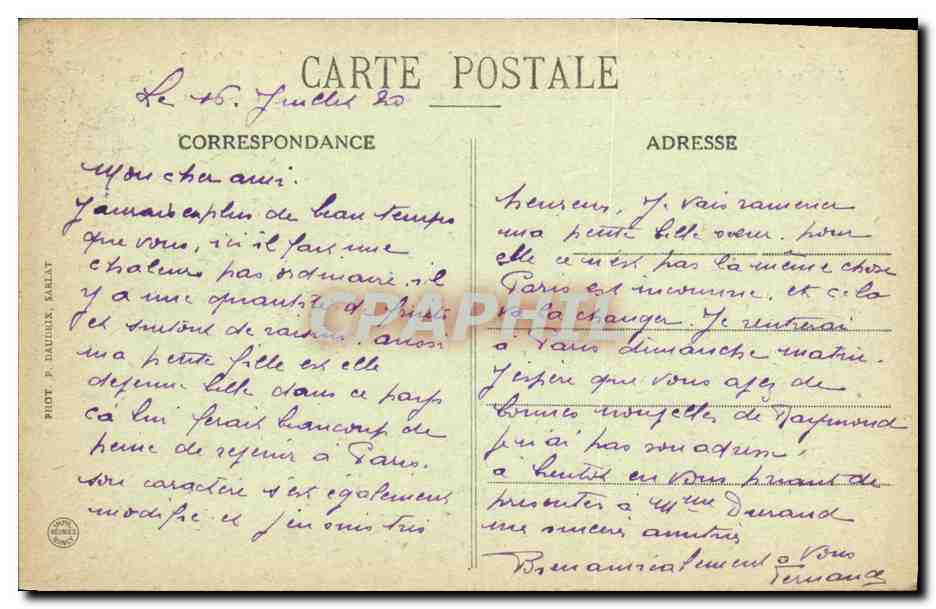 CARTE POSTALE
Le 16 Juillet 20
CORRESPONDANCE
Mon cher ami.
J'aurais eu plus de beau temps
que vous, ici il fait une
chaleur pas ordinaire, il
y a une quantité de fruits
et surtout de raisins. aussi
ma petite fille est elle
devenue belle dans ce pays
ça lui ferait beaucoup de
peine de revenir à Paris.
son caractère s'est également
modifié et j'en suis très
ADRESSE
heureux, Je vais ramener
ma petite belle sœur, pour
elle ce n'est pas la même chose
Paris est inconnu, et cela
va la changer. Je rentrerai
à Paris dimanche matin.
J'espère que vous avez de
bonnes nouvelles de Raymond
je n'ai pas son adresse.
à bientôt en vous priant de
présenter à Mme Durand
me sincères amitiés
Bien amicalement à vous
Fernand
PHOT. P. DAUDRIX, SARLAT
IMPIES RÉUNIES NANCY
CPAPHIL